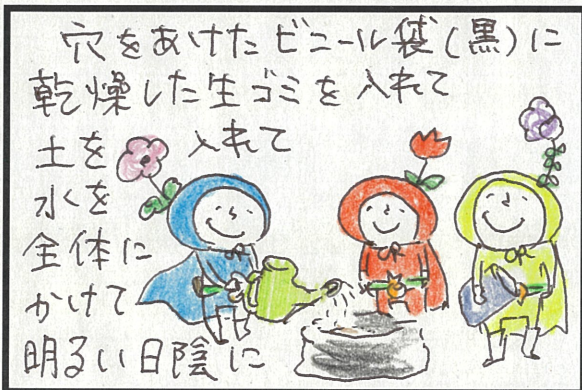 穴をあけたビニール袋(黒)に
乾燥した生ゴミを入れて
土を 入れて
水を
全体に
かけて
明るい日陰に